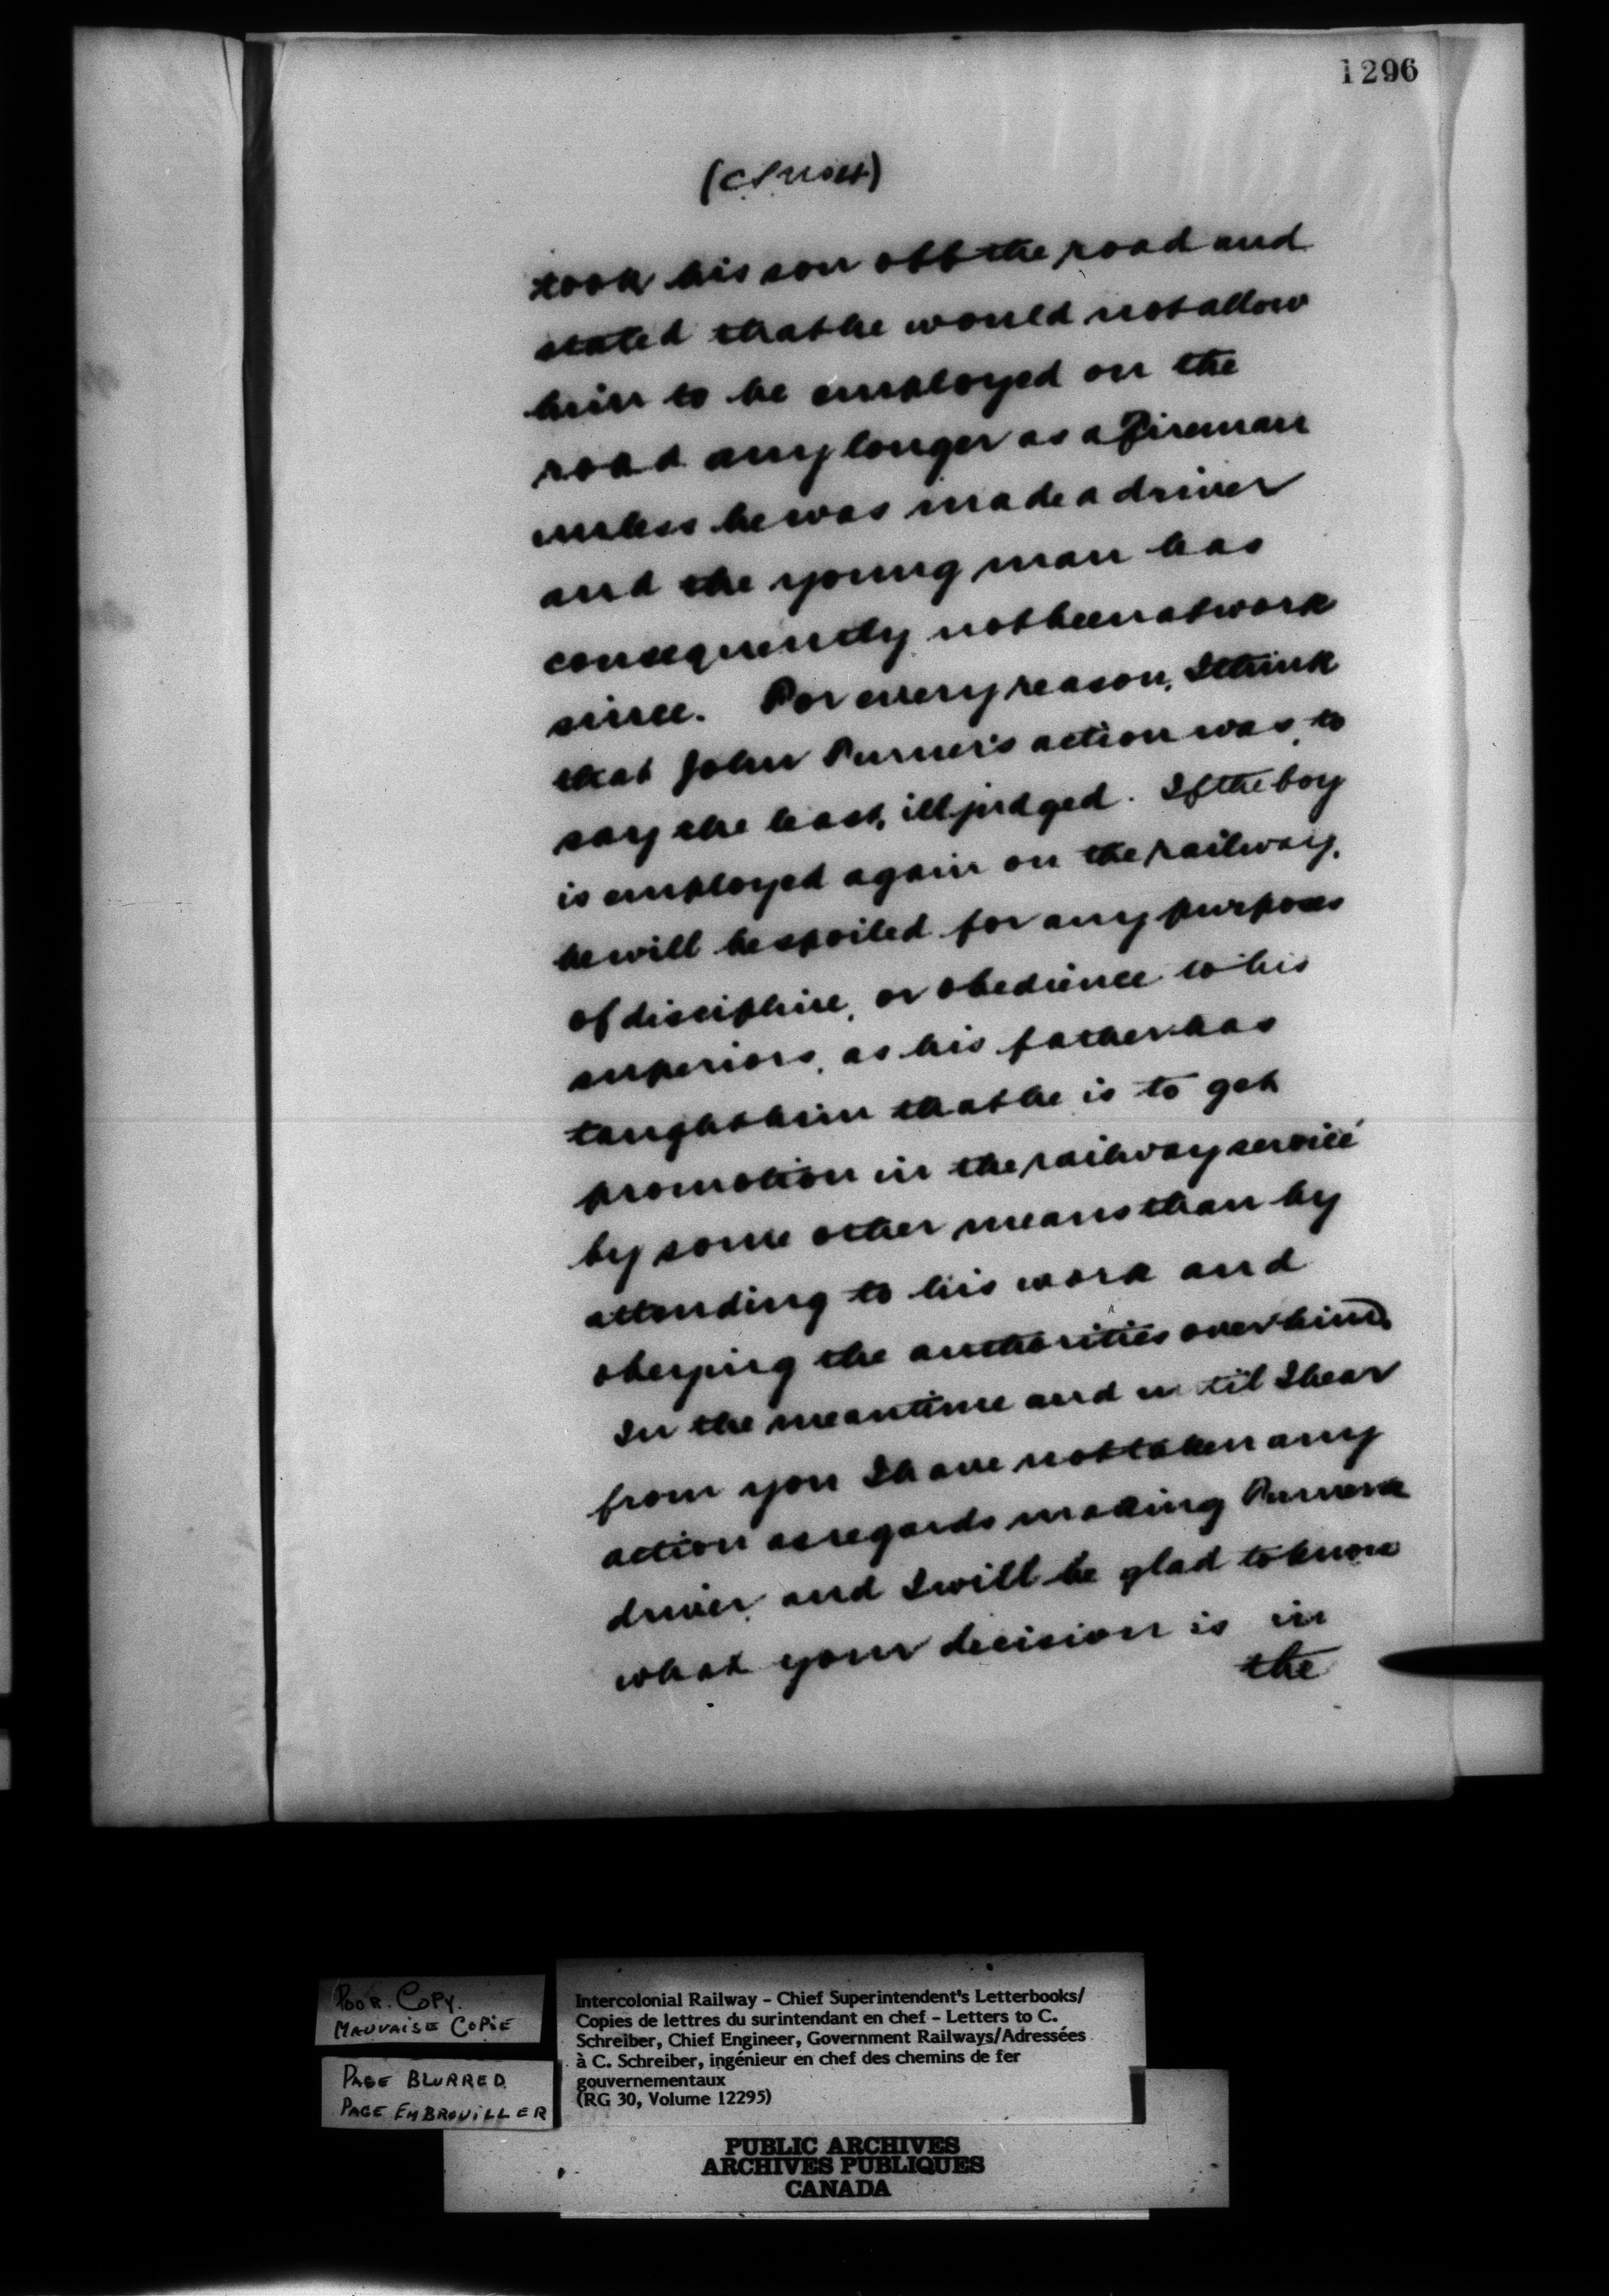 1296
took his son off the road and
stated that he would not allow
him to be employed on the
road any longer as a Fireman
unless he was made a driver
and the young man has
consequently not been at work
since. For every reason, I think
that John Turner's action was, to
say the least, ill judged. If the boy
is employed again on the railway,
he will be spoiled for any purposes
of discipline, or obedience to his
superiors, as his father has
taught him that he is to get
promotion in the railway service
by some other means than by
attending to his work and
obeying the authorities over him.
In the meantime and until I hear
from you I have not taken any
action as regards making Turner a
driver and I will be glad to know
what your decision is in
the
POOR. COPY.
MAUVAISE COPIE
PAGE BLURRED
PAGE EMBROUILLER
Intercolonial Railway – Chief Superintendent's Letterbooks/
Copies de lettres du surintendant en chef – Letters to C.
Schreiber, Chief Engineer, Government Railways/Adressées
à C. Schreiber, ingénieur en chef des chemins de fer
gouvernementaux
(RG 30, Volume 12295)
PUBLIC ARCHIVES
ARCHIVES PUBLIQUES
CANADA